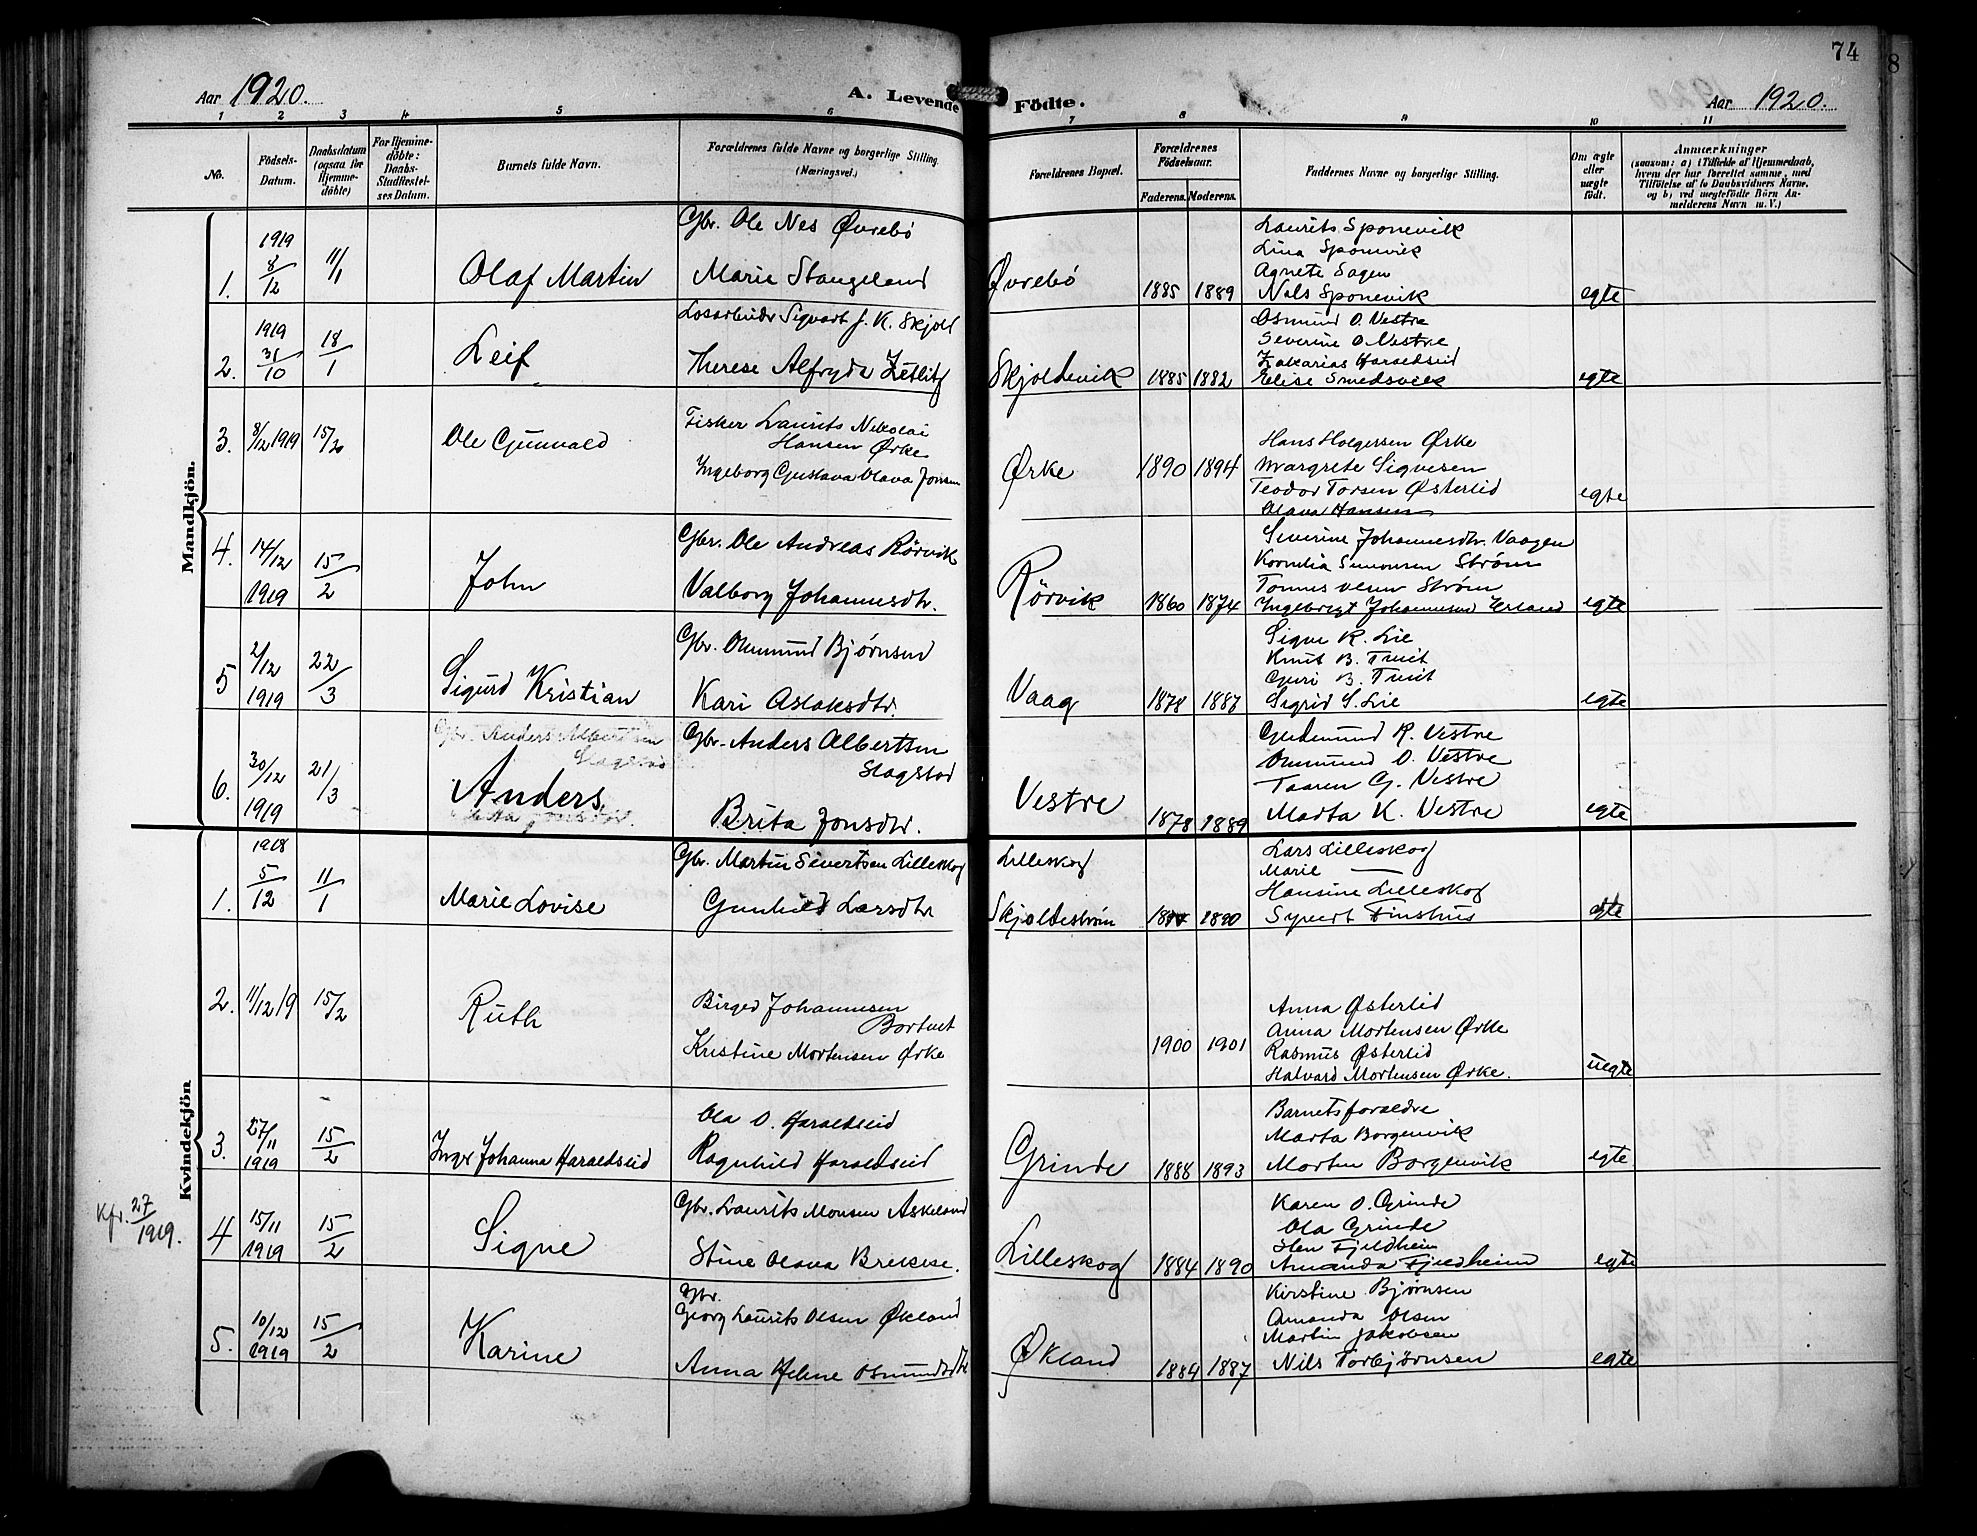 74
8
Aar 1920.
A. Levende Födte.
Aar 1920.
1 2 3 4 5 6 7 8 9 10 11
No.
Födsels-
Datum.
Daabsdatum
(ogsaa for
Hjemme-
döbte)
For Hjemme-
döbte:
Daabs-
Stadfestel-
ses Datum.
Barnets fulde Navn.
Forældrenes fulde Navne og borgerlige Stilling.
(Næringsvei.)
Forældrenes Bopæl.
Forældrenes
Födselsaar.
Faderens.
Moderens.
Faddernes Navne og borgerlige Stilling.
Om ægte
eller
uægte
født.
Anmærkninger
(saasom: a) i Tilfælde af Hjemmedaab,
hvem der har forrettet samme, med
Tilføielse af to Daabsvidners Navne,
og b) ved uægtefödte Börn An-
melderens Navn m. V.)
Mandkjön.
1. 1919 8/12 11/1 Olaf Martin
Gbr. Ole Nes Øvrebö
Marie Stangeland
Øvrebö 1885 1889
Laurits Sponevik
Lina Sponevik
Agnete Sagen
Nils Sponevik
egte
2. 1919 31/10 18/1 Leif
Losarbeider Sigvart J. K. Skjold
Therese Alfryda Zetlitz
Skjoldevik 1885 1882
Osmund O. Vestre
Severine O. Vestre
Zakarias Haraldseid
Elise Smedsvik
egte
3. 8/12 1919 15/2 Ole Gunvald
Fisker Laurits Nikolai
Hansen Ørke
Ingeborg Gustava Olava Jonsen
Ørke 1890 1894
Hans Holgersen Ørke
Margrete Sigvesen
Teodor Torsen Østerlid
Olava Hansen
egte
4. 14/12 1919 15/2 John
Gbr. Ole Andreas Rörvik
Valborg Johannesdtr.
Rörvik 1860 1874
Severine Johannesdtr. Vaagen
Kornelia Simonsen Ström
Tönnes Ström
Ingebrigt Johannesen Erland
egte
5 2/12 1919 22/3 Sigurd Kristian
Gbr. Ommund Bjørnsen
Kari Aslaksdtr.
Vaag 1878 1887
Signe K. Lie
Knut B. Tveit
Guri B. Tveit
Sigrid S. Lie
egte
6. 30/12 1919 21/3
Gbr. Anders Albertsen
Slagstad
Anders
Gbr. Anders Albertsen
Slagstad
Brita Jonsdtr.
Vestre 1878 1889
Gudmund K. Vestre
Ommund O. Vestre
Taaren G. Vestre
Marta K. Vestre
egte
Kvindekjön
1. 1918 5/12 11/1 Marie Lovise
Gbr. Martin Sivertsen Lilleskog
Gunhild Larsdtr
Lilleskog
Skjoldeström 1890
Lars Lilleskog
Marie —
Hansine Lilleskog
Syvert Finshus
egte
2. 11/12 19 15/2 Ruth
Birger Johannesen
Bortveit
Kristine Mortensen Ørke
1900 1901
Anna Østerlid
Anna Mortensen Ørke
Rasmus Østerlid
Halvard Mortensen Ørke.
uegte
3. 27/11 1919 15/2 Inger Johanna Haraldseid
Ola O. Haraldseid
Ragnhild Haraldseid
Grinde 1888 1893
Barnets foreldre
Marta Borgenvik
Morten Borgenvik
egte
Kfr. 27/1919.
4 15/11 1919 15/2 Signe
Gbr. Laurits Monsen Askeland
Stine Olava Brekke.
Lilleskog 1884 1890
Karen O. Grinde
Ola Grinde
Sten Fjeldheim
Amanda Fjeldheim
egte
5. 10/12 1919 15/2 Karine
Gbr.
Georg Laurits Olsen Økland
Anna Helene Osmundsdtr
Økland 1884 1887
Kirstine Bjørnsen
Amanda Olsen
Martin Jakobsen
Nils Torbjørnsen
egte